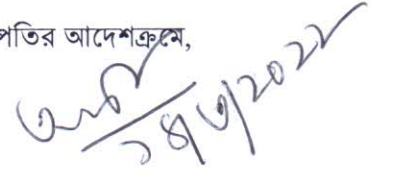 পতির আদেশক্রমে,
১৪/৩/২০২২